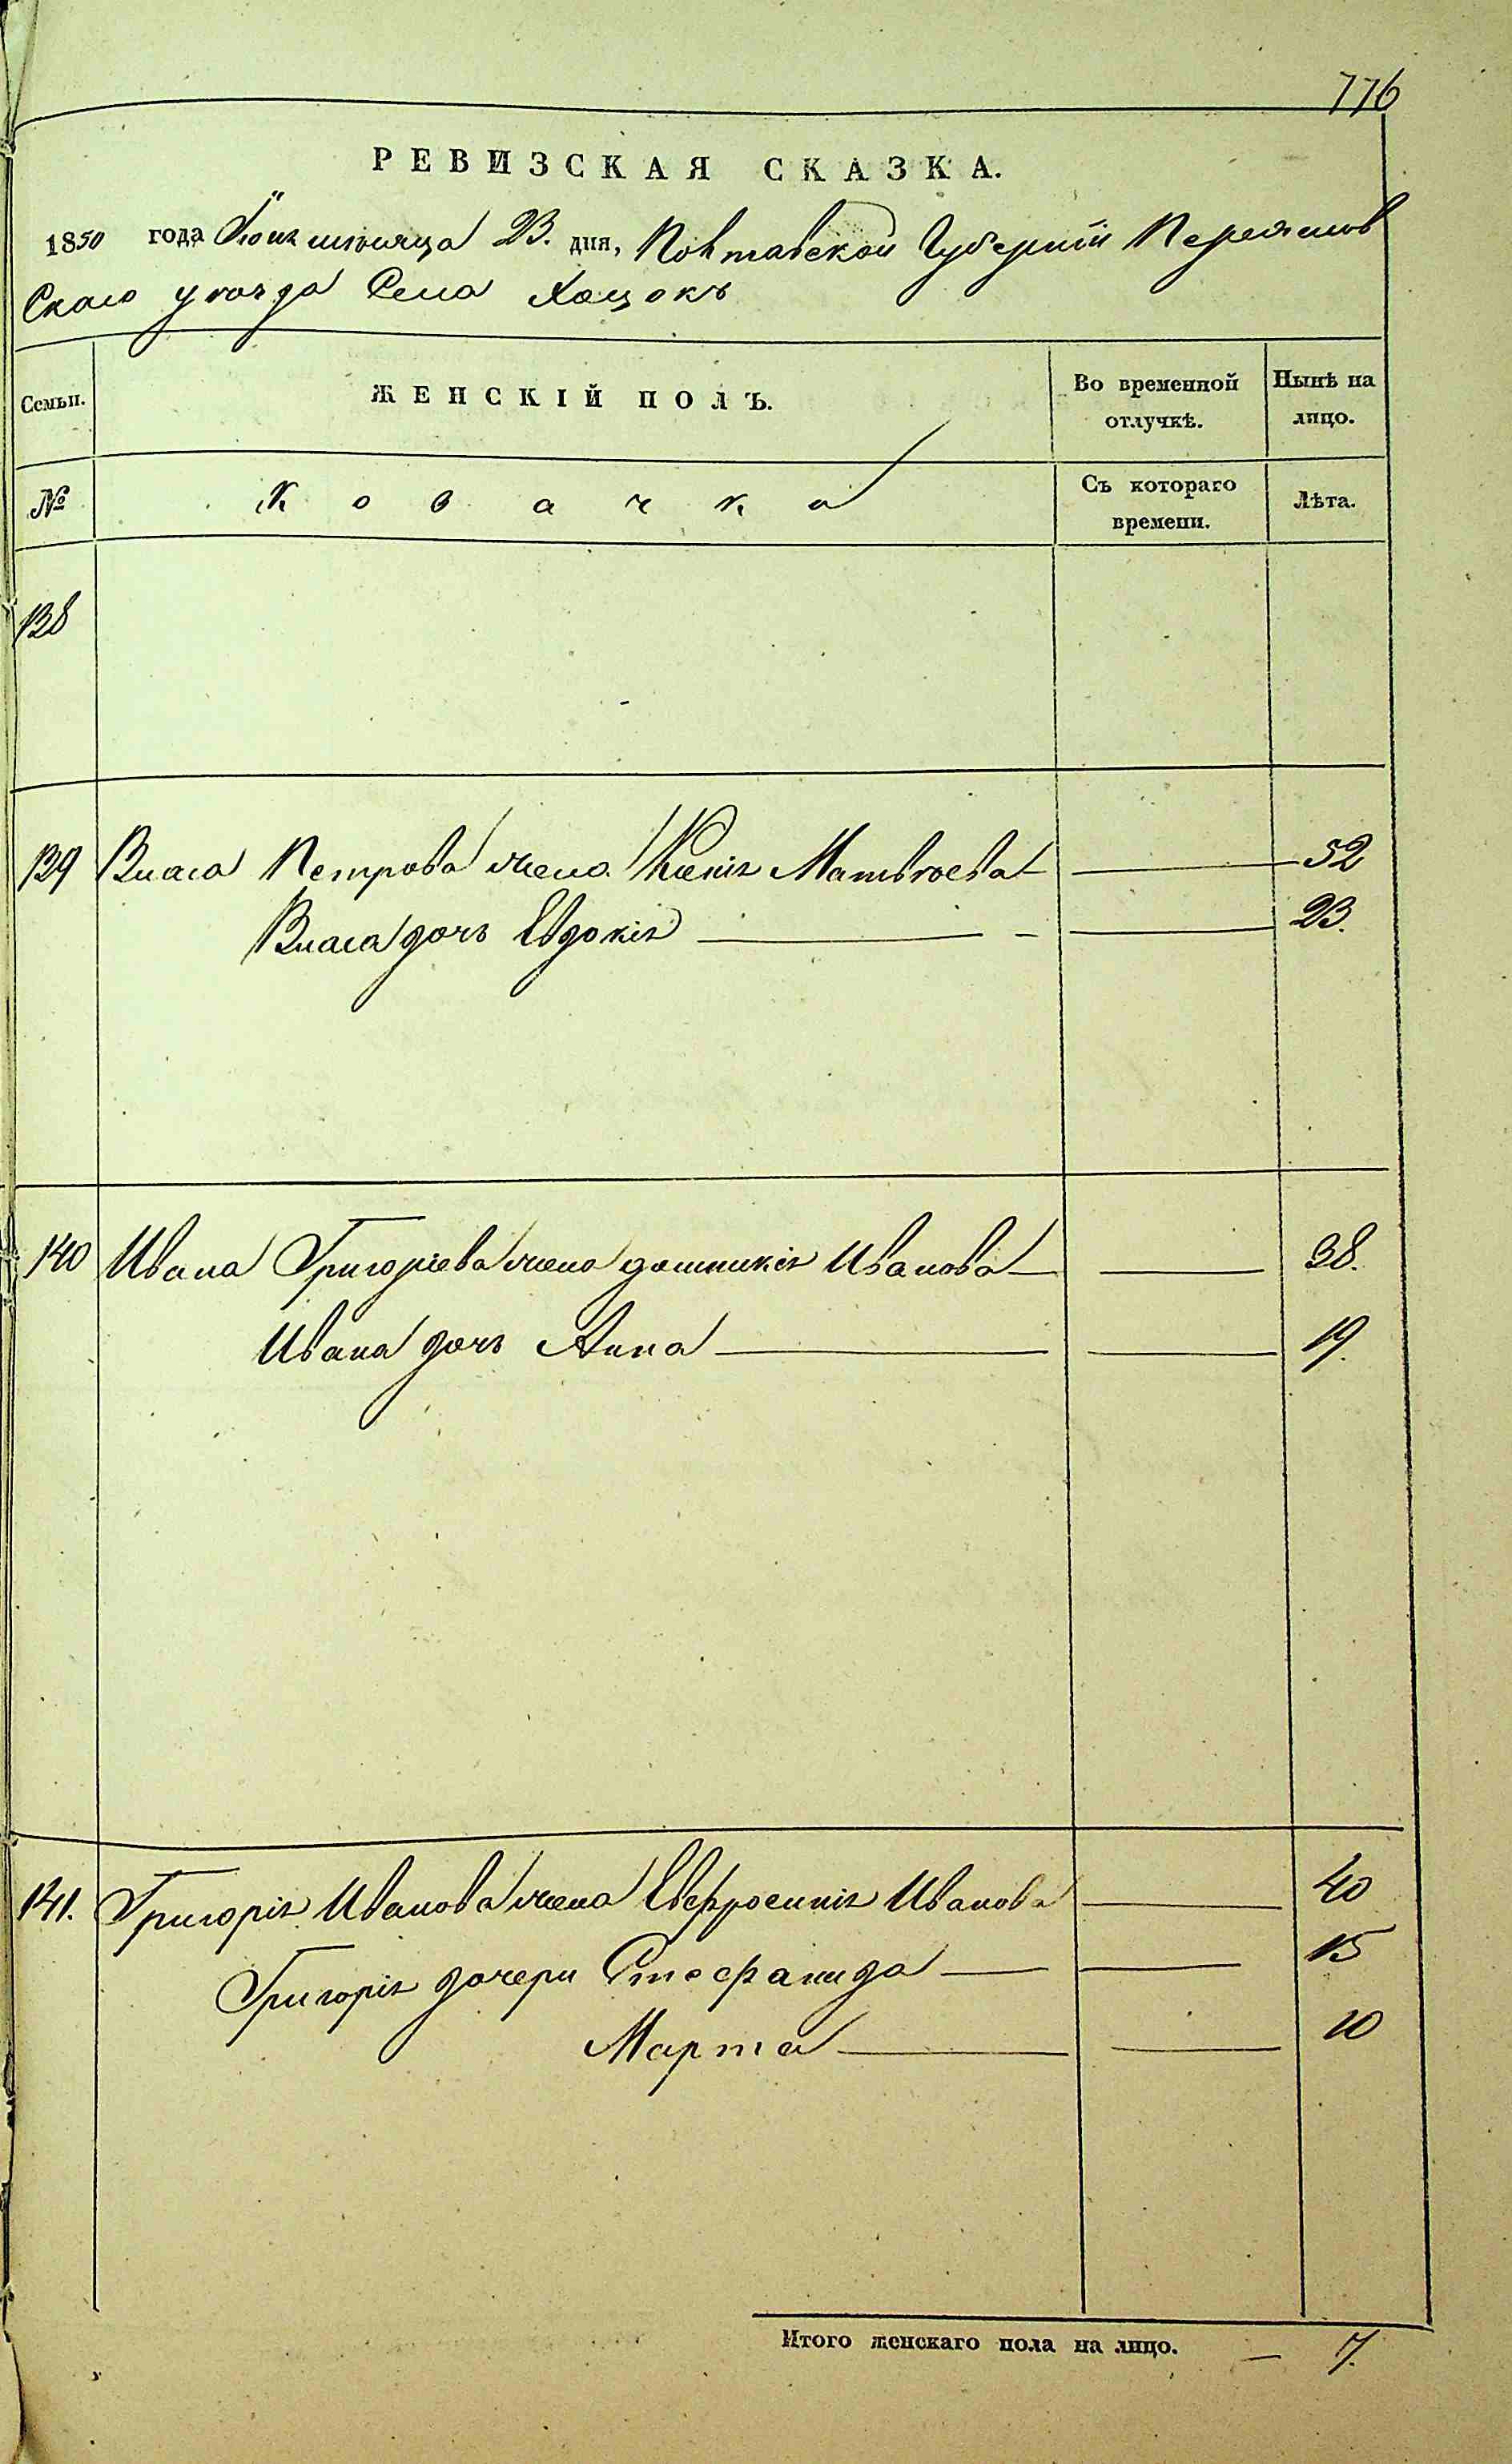 776
РЕВИЗСКАЯ СКАЗКА.
1850 года Іюня мѣсяца 23. дня, Полтавской Губерніи Переяслов
Скаго уѣзда Села Хоцокъ
Семьи. ЖЕНСКІЙ ПОЛЪ. Во временной отлучкѣ. Нынѣ на лицо.
№ Козачка Съ котораго времени. Лѣта.
138
139 Власа Петрова жена Ксенія Матвѣева 52
Власа дочь Евдокія 23.
140 Ивана Григоріева жена домникія Иванова 38.
Ивана дочь Анна 19.
141. Григорія Иванова жена Евфросинія Иванова 40
Григорія дочери Стефанида 15
Марта 10
Итого женскаго пола на лицо. — 7.